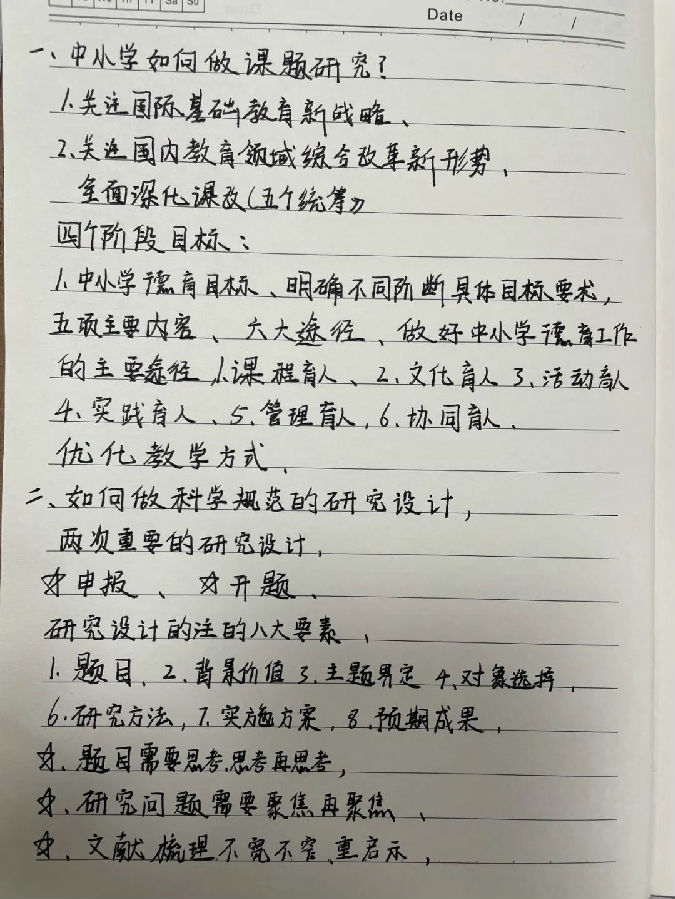 Date / /
一、中小学如何做课题研究?
1.关注国际基础教育新战略、
2.关注国内教育领域综合改革新形势、
全面深化课改(五个统筹)
四个阶段目标:
1.中小学德育目标、明确不同阶断具体目标要求,
五项主要内容、六大途径、做好中小学德育工作
的主要途径,1.课程育人、2、文化育人 3、活动育人
4、实践育人、5、管理育人,6、协同育人、
优化教学方式、
二、如何做科学规范的研究设计,
两次重要的研究设计,
☆申报、☆开题、
研究设计的注的八大要素,
1、题目、2、背景价值 3、主题界定 4、对象选择,
6.研究方法,7、实施方案,8、预期成果,
☆、题目需要思考.思考再思考,
☆、研究问题需要聚焦再聚焦、
☆、文献梳理不宽不窄、重启示,